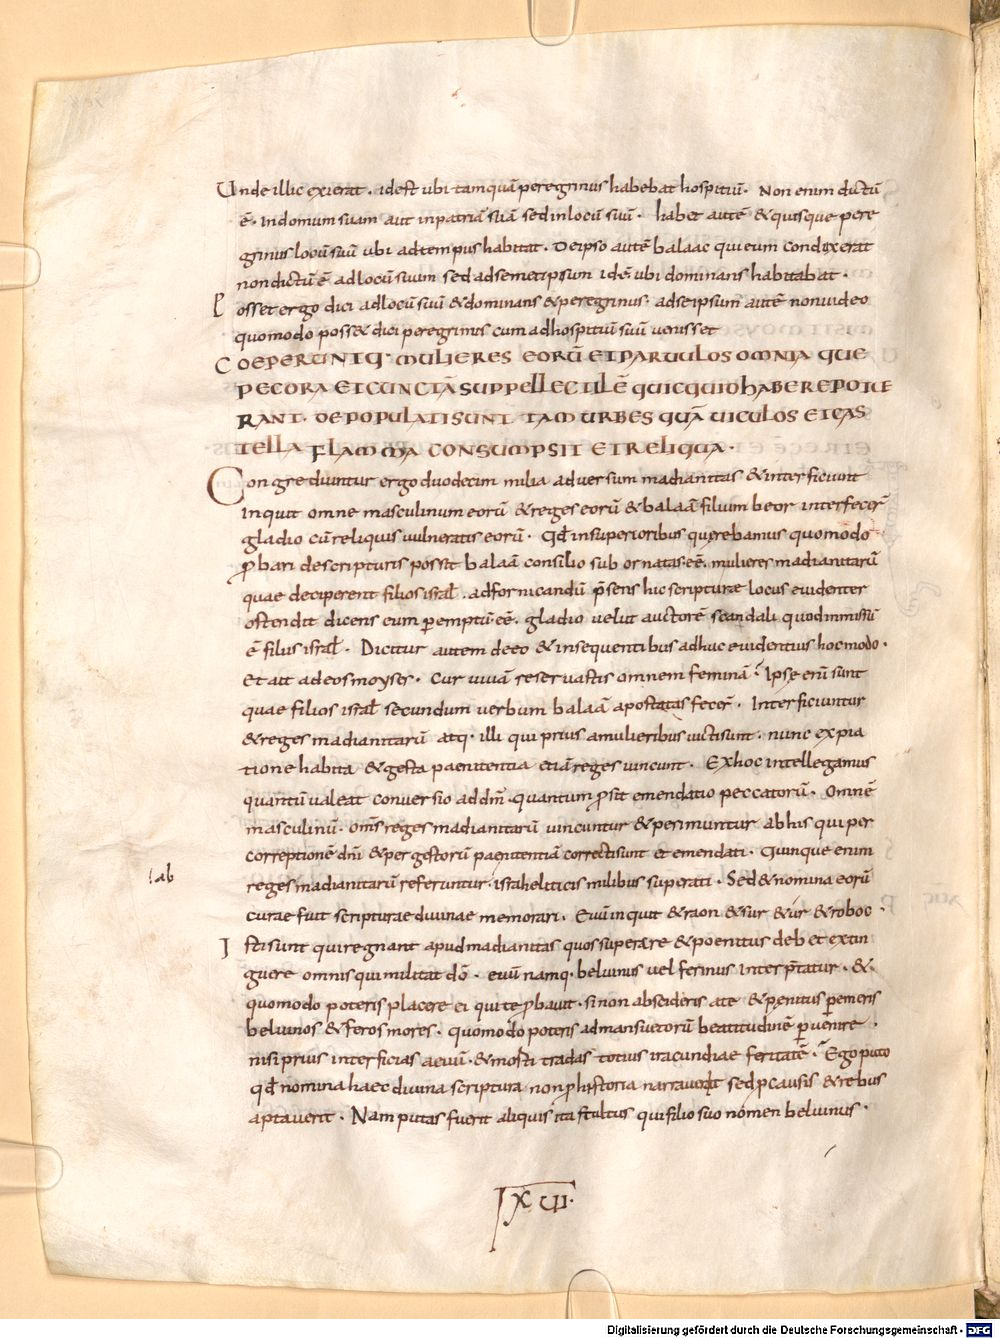 Unde illic exierat . idest ubi tamquā peregrinus habebat hospitiū . Non enim dictū
ē . in domum suam aut in patriā suā sed in locū suū . habet autē & quisque pere
grinus locū suū ubi ad tempus habitat . De ipso autē balaac qui eum conduxerat
non dictū ē ad locū suum sed ad semetipsum idē ubi dominans habitabat .
Posset ergo dici ad locū suū & dominans & peregrinus . ad seipsum autē non video
quomodo posset dici peregrinus cum ad hospitiū suū venisset
COEPERUNTQ · MULIERES EORŪ ET PARVULOS OMNIA QUE
PECORA ET CUNCTĀ SUPPELLECTILĒ QUICQUID HABERE POTUE
RANT . DEPOPULATI SUNT TAM URBES QUĀ VICULOS ET CAS
TELLA FLAMMA CONSUMPSIT ET RELIQUA .
Congrediuntur ergo duodecim milia adversum madianitas & interficiunt
inquit omne masculinum eorū & reges eorū & balaā filium beor interfecer̄
gladio cū reliquis vulneratis eorū . Qd̄ in superioribus querebamus quomodo
ꝓbari de scripturis possit balaā consilio subornatas . eē . mulieres madianitarū
quae deciperent filios israł . ad fornicandū p̄sens hic scripturae locus evidenter
ostendit dicens eum ꝑemptū . eē . gladio velut auctorē scandali quod inmissū
ē filiis israł . Dicitur autem de eo & in sequentibus adhuc evidentius hoc modo .
Et ait ad eos moyses . Cur vivā reservastis omnem feminā ? Ipse enī sunt
quae filios israł secundum verbum balaā apostatas fecer̄ . Interficiuntur
& reges madianitarū atq · illi qui prius a mulieribus victi sunt . nunc expia
tione habita & gesta paenitentia etiā reges vincunt . Ex hoc intellegamus
quantū valeat conversio ad dm̄ . quantum ꝓsit emendatio peccatorū . Omnē
masculinū . oms̄ reges madianitarū vincuntur & perimuntur ab his qui per
correptionē dn̄i & per gestorū paenitentiā correcti sunt et emendati . Quinque enim
! ab
reges madianitarū referuntur . israheliticis milibus superati . Sed & nomina eorū
curae fuit scripturae divinae memorari . Evū inquit & raon & sur & ur & roboc .
Isti sunt qui regnant apud madianitas quos superare & poenitus debet extin
guere omnis qui militat dō . evū namq · beluinus vel ferinus interp̄tatur . &
quomodo poteris placere ei qui te ꝓbavit . si non abscideris a te & penitus ꝑemeris
beluinos & feros mores . quomodo poteris ad mansuetorū beatitudinē ꝑvenire .
nisi prius interficias aevū . & morti tradas totius iracundiae feritatē ? Ego puto
qd̄ nomina haec divina scriptura non ꝓ historia narraverit sed ꝓ causis & rebus
aptaverit . Nam putas fuerit aliquis ita stultus qui filio suo nomen beluinus .
XVII
Digitalisierung gefördert durch die Deutsche Forschungsgemeinschaft - DFG